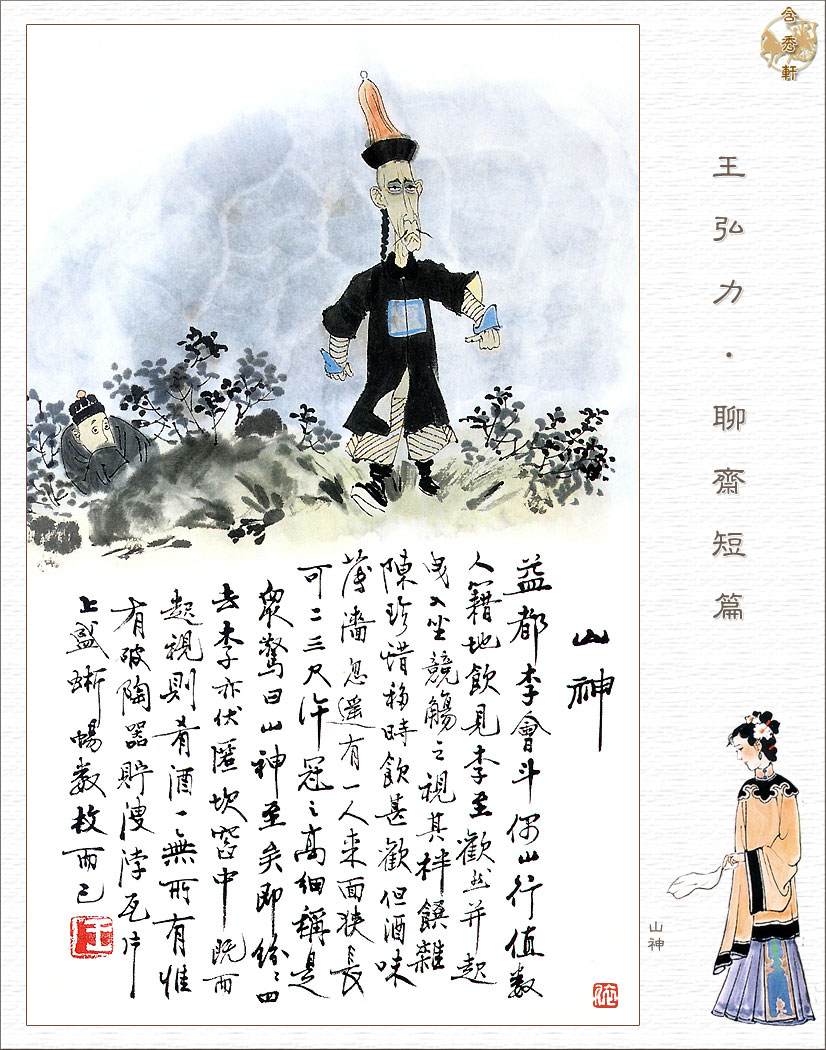 含秀軒
王弘力·聊齋短篇
山神
益都李會斗偶山行值數
人籍地飲見李至歡然并起
曳入坐競觴之視其柈饌雜
陳珍惜移時飲甚歡但酒味
薄濇忽遥有一人来面狹長
可二三尺许冠之高細稱是
衆驚曰山神至矣即纷纷四
去李亦伏匿坎窞中既而
起視則肴酒一無所有惟
有破陶器貯溲浡瓦片
上盛蜥蜴数枚而已
王
山神